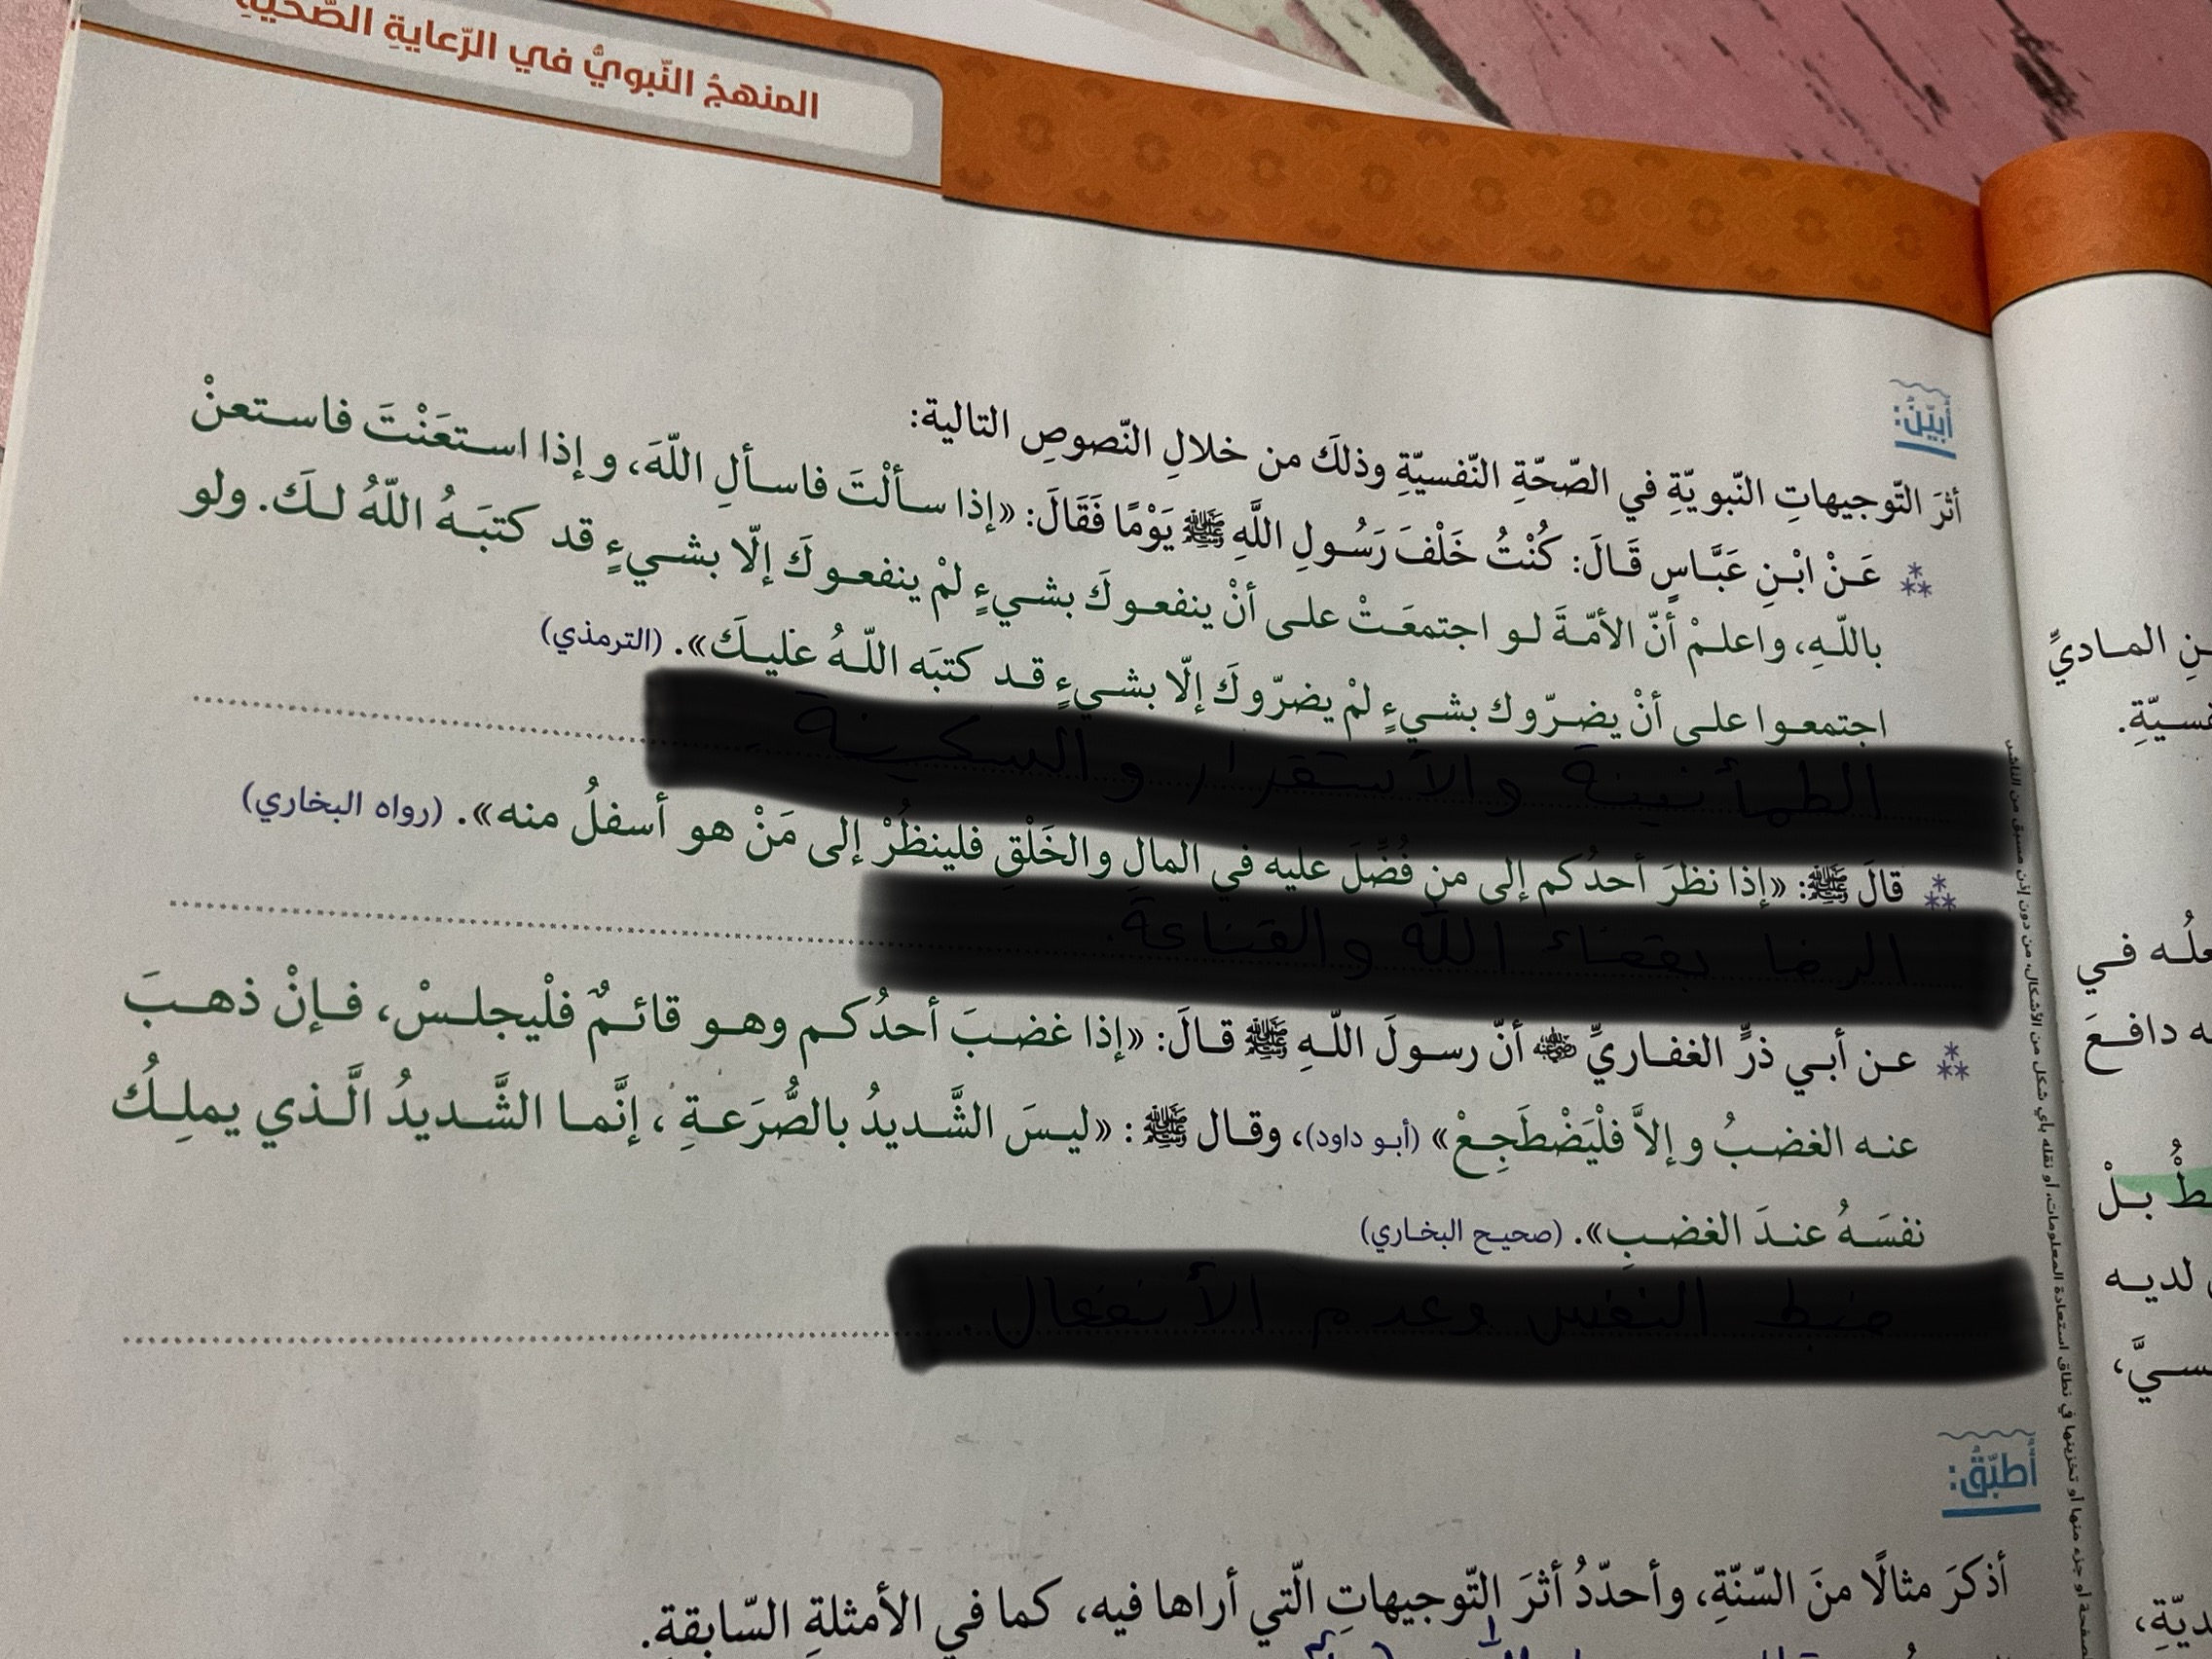 المنهجُ النّبويُّ في الرّعايةِ الصّحيّةِ
أبيّنُ:
أثرَ التّوجيهاتِ النّبويّةِ في الصّحّةِ النّفسيّةِ وذلكَ من خلالِ النّصوصِ التالية:
عَنْ ابْنِ عَبَّاسٍ قَالَ: كُنْتُ خَلْفَ رَسُولِ اللَّهِ ﷺ يَوْمًا فَقَالَ: «إذا سألْتَ فاسألِ اللّهَ، وإذا استعَنْتَ فاستعنْ
باللّهِ، واعلمْ أنّ الأمّةَ لو اجتمعَتْ على أنْ ينفعوكَ بشيءٍ لمْ ينفعوكَ إلّا بشيءٍ قد كتبَهُ اللّهُ لكَ. ولو
اجتمعوا على أنْ يضرّوك بشيءٍ لمْ يضرّوكَ إلّا بشيءٍ قد كتبَه اللّهُ عليكَ». (الترمذي)
الطمأنينة والأستقرار و السكينة
قالَ ﷺ: «إذا نظرَ أحدُكم إلى من فُضِّلَ عليه في المالِ والخَلْقِ فلينظُرْ إلى مَنْ هو أسفلُ منه». (رواه البخاري)
الرضا بقضاء الله والقناعة.
عن أبي ذرٍّ الغفاريِّ ﵁ أنّ رسولَ اللّهِ ﷺ قالَ: «إذا غضبَ أحدُكم وهو قائمٌ فلْيجلسْ، فإنْ ذهبَ
عنه الغضبُ وإلاَّ فلْيَضْطَجِعْ» (أبو داود)، وقال ﷺ: «ليسَ الشَّديدُ بالصُّرَعةِ، إنَّما الشَّديدُ الَّذي يملِكُ
نفسَهُ عندَ الغضبِ». (صحيح البخاري)
ضبط النفس وعدم الأنفعال.
أُطبّقُ:
أذكرَ مثالًا منَ السّنّةِ، وأحدّدُ أثرَ التّوجيهاتِ الّتي أراها فيه، كما في الأمثلةِ السّابقةِ.